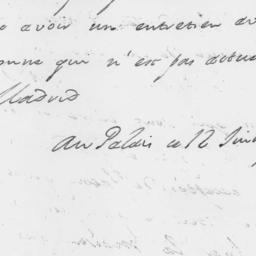 avoir un entretien av
qui n'est pas actue
Madrid
au Palais ce 12 Juin